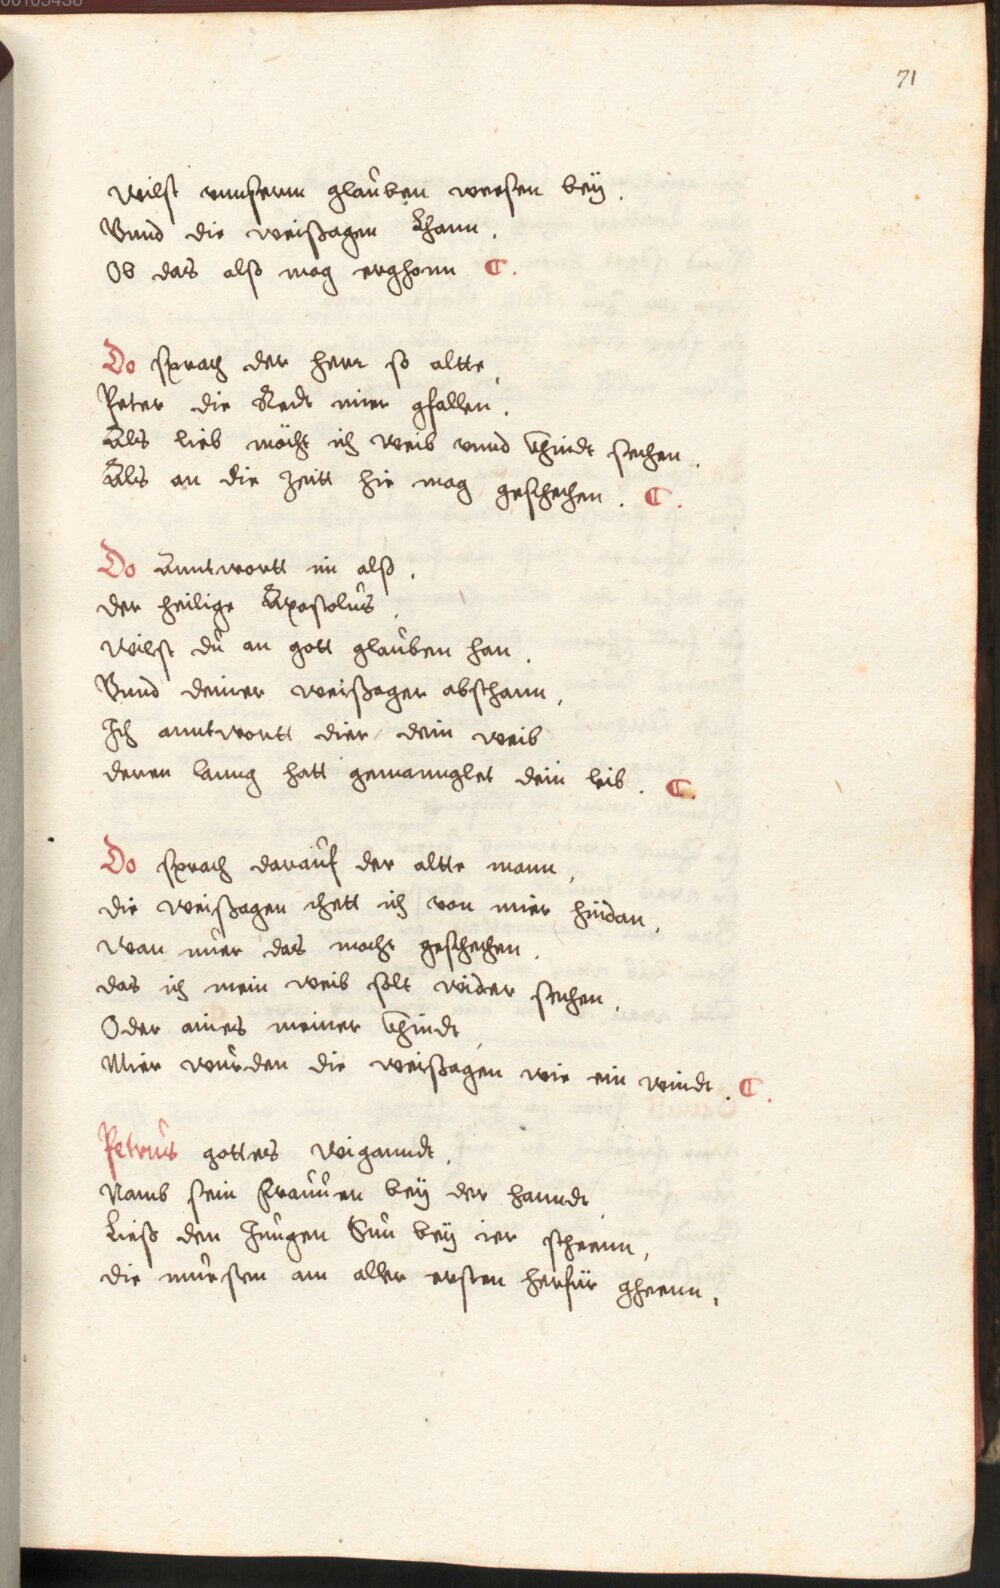 00105438
71
wilst vnnserm glauben wesen beÿ.
Vnnd die weissagen Lhann.
Ob das alß mag erghonn C.
Do sprach der herr so altte,
Peter die Redt mier gfallen.
Als lieb möcht ich weib vnnd Khindt sechen.
Als an die zeitt hie mag geschechen. C.
Do Anntwortt im alß.
der heilige Apostolus.
wilst du an gott glauben han.
Vnnd deiner weissager abschann,
Ich anntwortt dier dein weib
deren lanng hatt gemannglet dein leib. C.
Do sprach darauf der altte mann,
die weissagen thett ich von mier hindan.
wan nuer das mocht geschechen.
das ich mein weib solt wider sechen,
Oder aines meiner Khindt,
Mier wurden die weissagen wie ein windt. C.
Petrus gottes wiganndt.
Namb sein Frauuen beÿ der hanndt,
Ließ den Jungen Sun beÿ ier scheenn,
die muesten am aller ersten herfür gheenn,